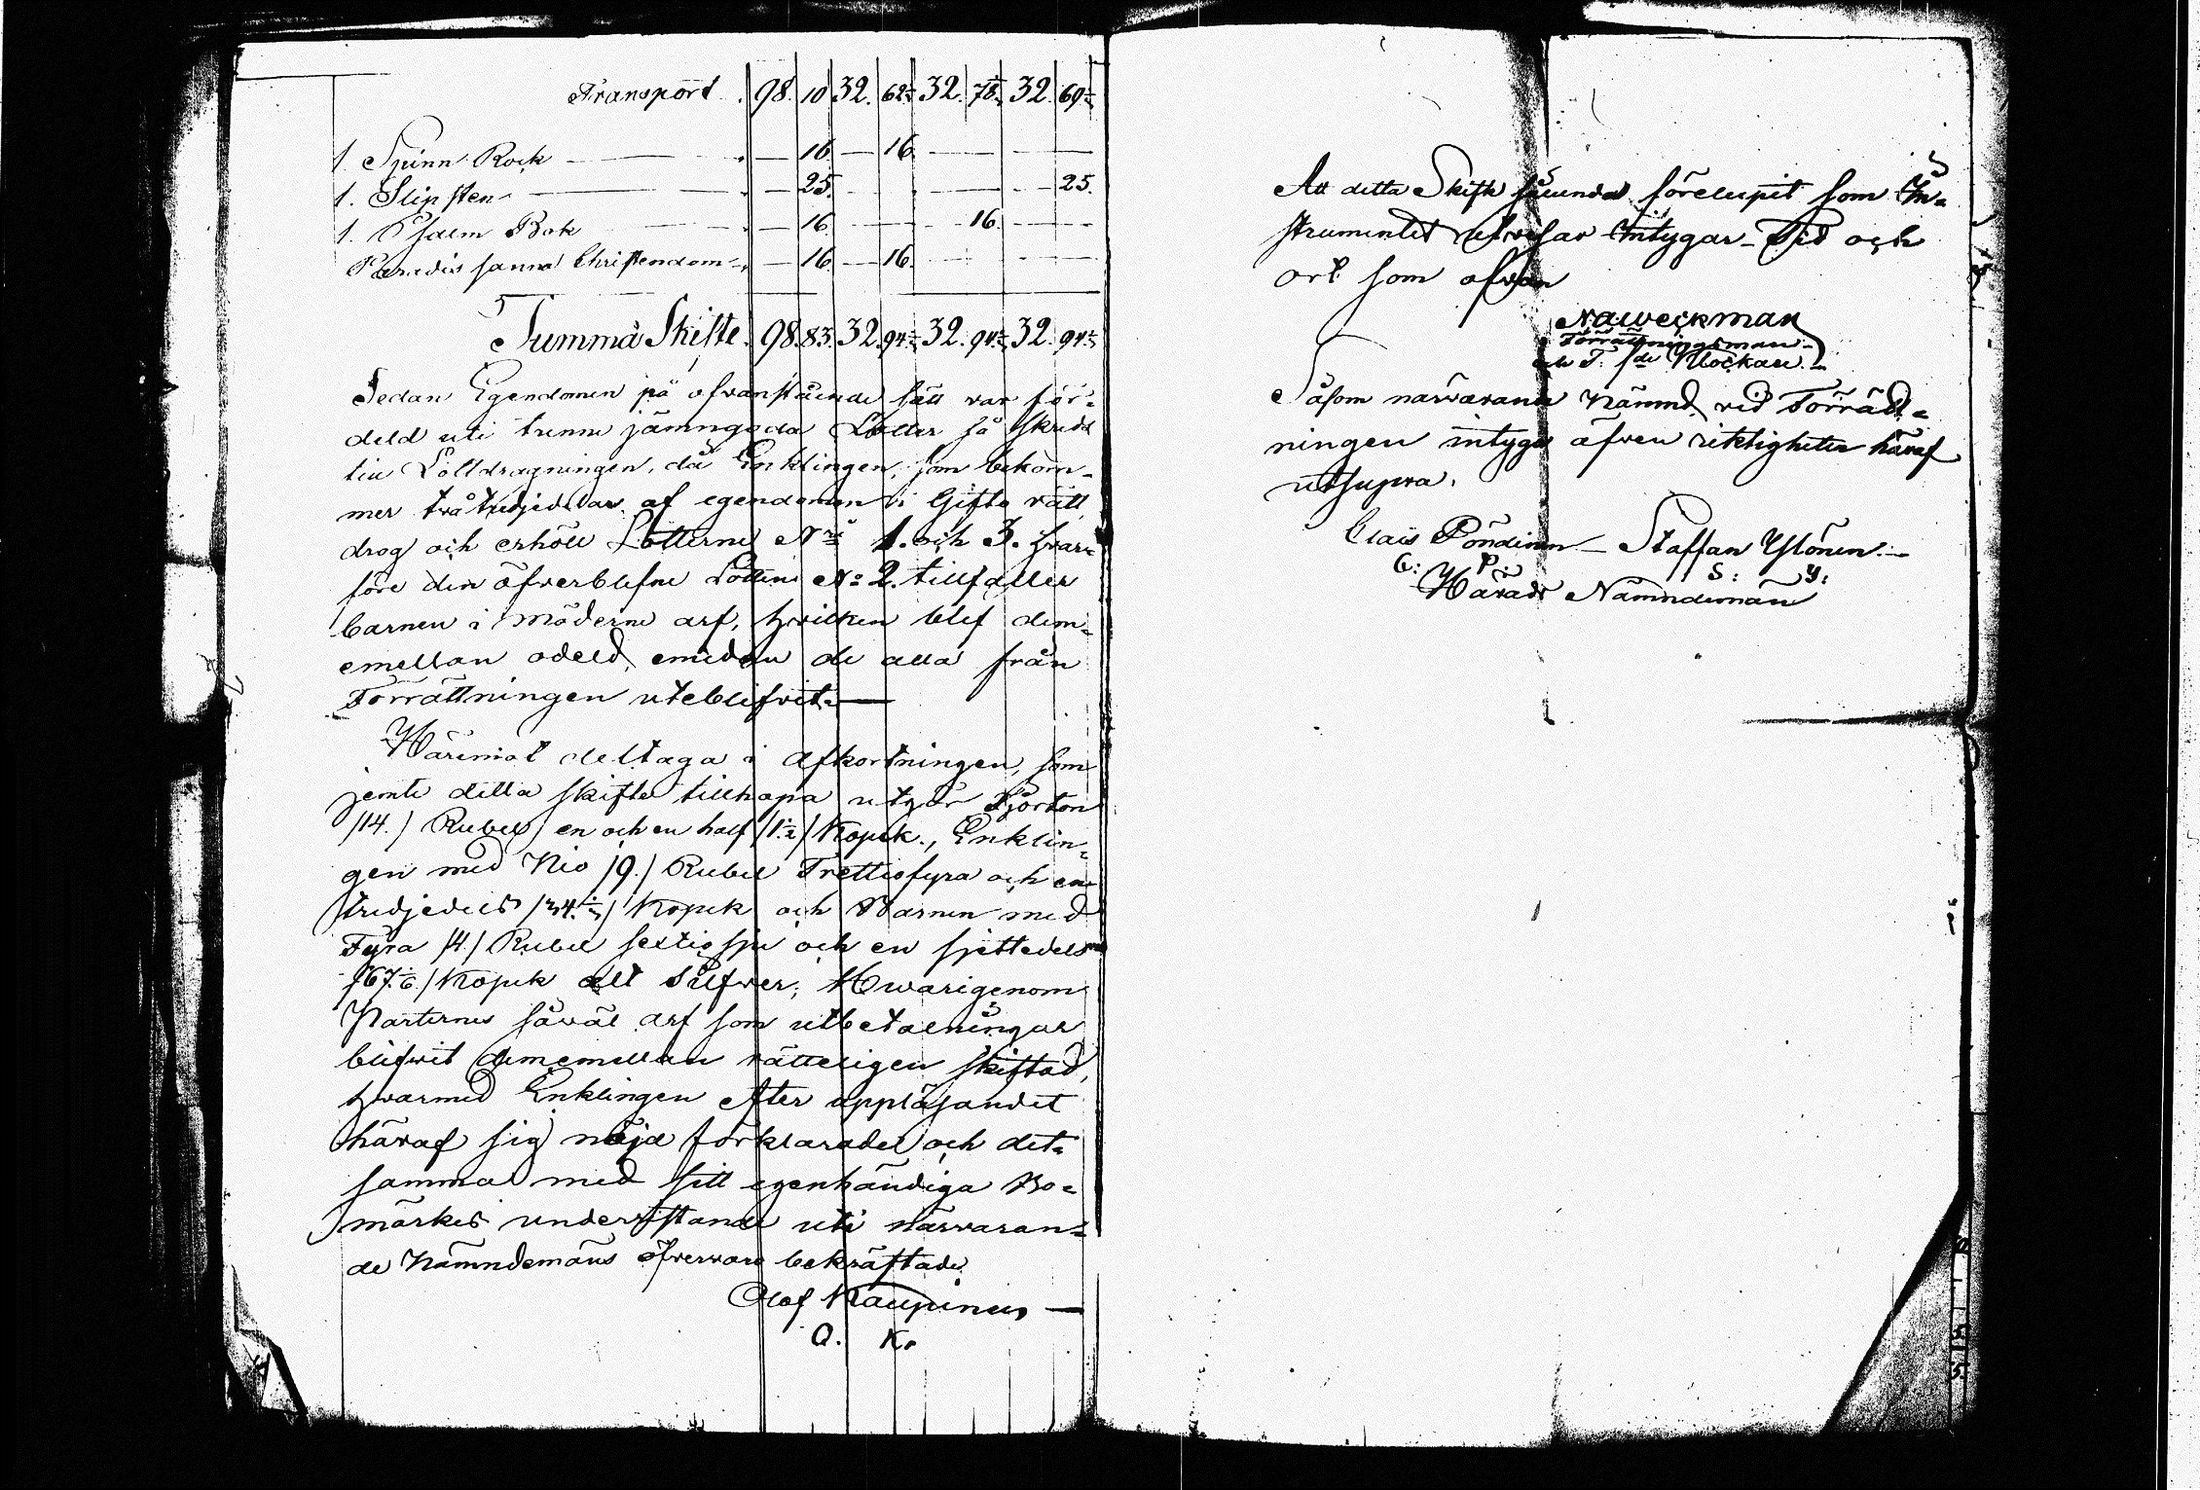 Transport. 98. 10 32. 62 1/2 32. 78 1/3 32. 69 1/3
1. Spinn Rock — 16. — 16. — — — —
1. Slipsten — 25. — — — — — 25.
1. Psalm Bok — 16. — — — 16. — —
Paradis sanna Christendom — 16. — 16. — — — —
Summa Skifte. 98. 83. 32. 94 1/3 32. 94 1/3 32. 94 1/3
Sedan Egendomen på ofvanstående sätt var för=
deld uti trenne jämngoda Lotter så skreds
till Lottdragningen, då Enklingen, som bekom-
mer två tredjedelar af egendomen i Gifto rätt
drog och erhöll Lotterne No 1. och 3. hvar=
före den öfverblefne Lotten No 2. tillfaller
barnen i möderne arf, hvilken blef dem=
emellan odeld, emedan de alla från
Förrättningen uteblifvit. —
Häremot deltaga i afkortningen, som
jemte detta skifte tillhopa utgör Fjorton
/14./ Rubel en och en half /1 1/2/ Kopek., Enklin=
gen med Nio /9./ Rubel Trettiofyra och en
tredjedels /34 1/3/ Kopek och Barnen med
Fyra /4./ Rubel sextiosju och en sjettedels
/67 1/6./ Kopek allt Silfver; Hwarigenom
Parterne såväl arf som utbetalningar
blifvit dememellan rätteligen skiftad,
hvarmed Enklingen efter uppläsandet
häraf sig nöjd förklarade och det=
samma med sitt egenhändiga Bo=
märkes understående uti närvaran=
de Nämndemäns öfvervaro bekräftade
Olof Kaupinen —
O. K.
Att detta Skifte sålunda förelupit som In=
strumentet utvisar Intygar Tid och
ort som ofvan
Naweckman
Förrättningsman
och T. f. de Klockare.
Såsom närvarande Nämnd vid Förrätt=
ningen intyga äfven riktigheten häraf
utsupra.
Clas Pöndinen — Staffan Ylönen —
C: P: S: Y:
Härads Nämndemän